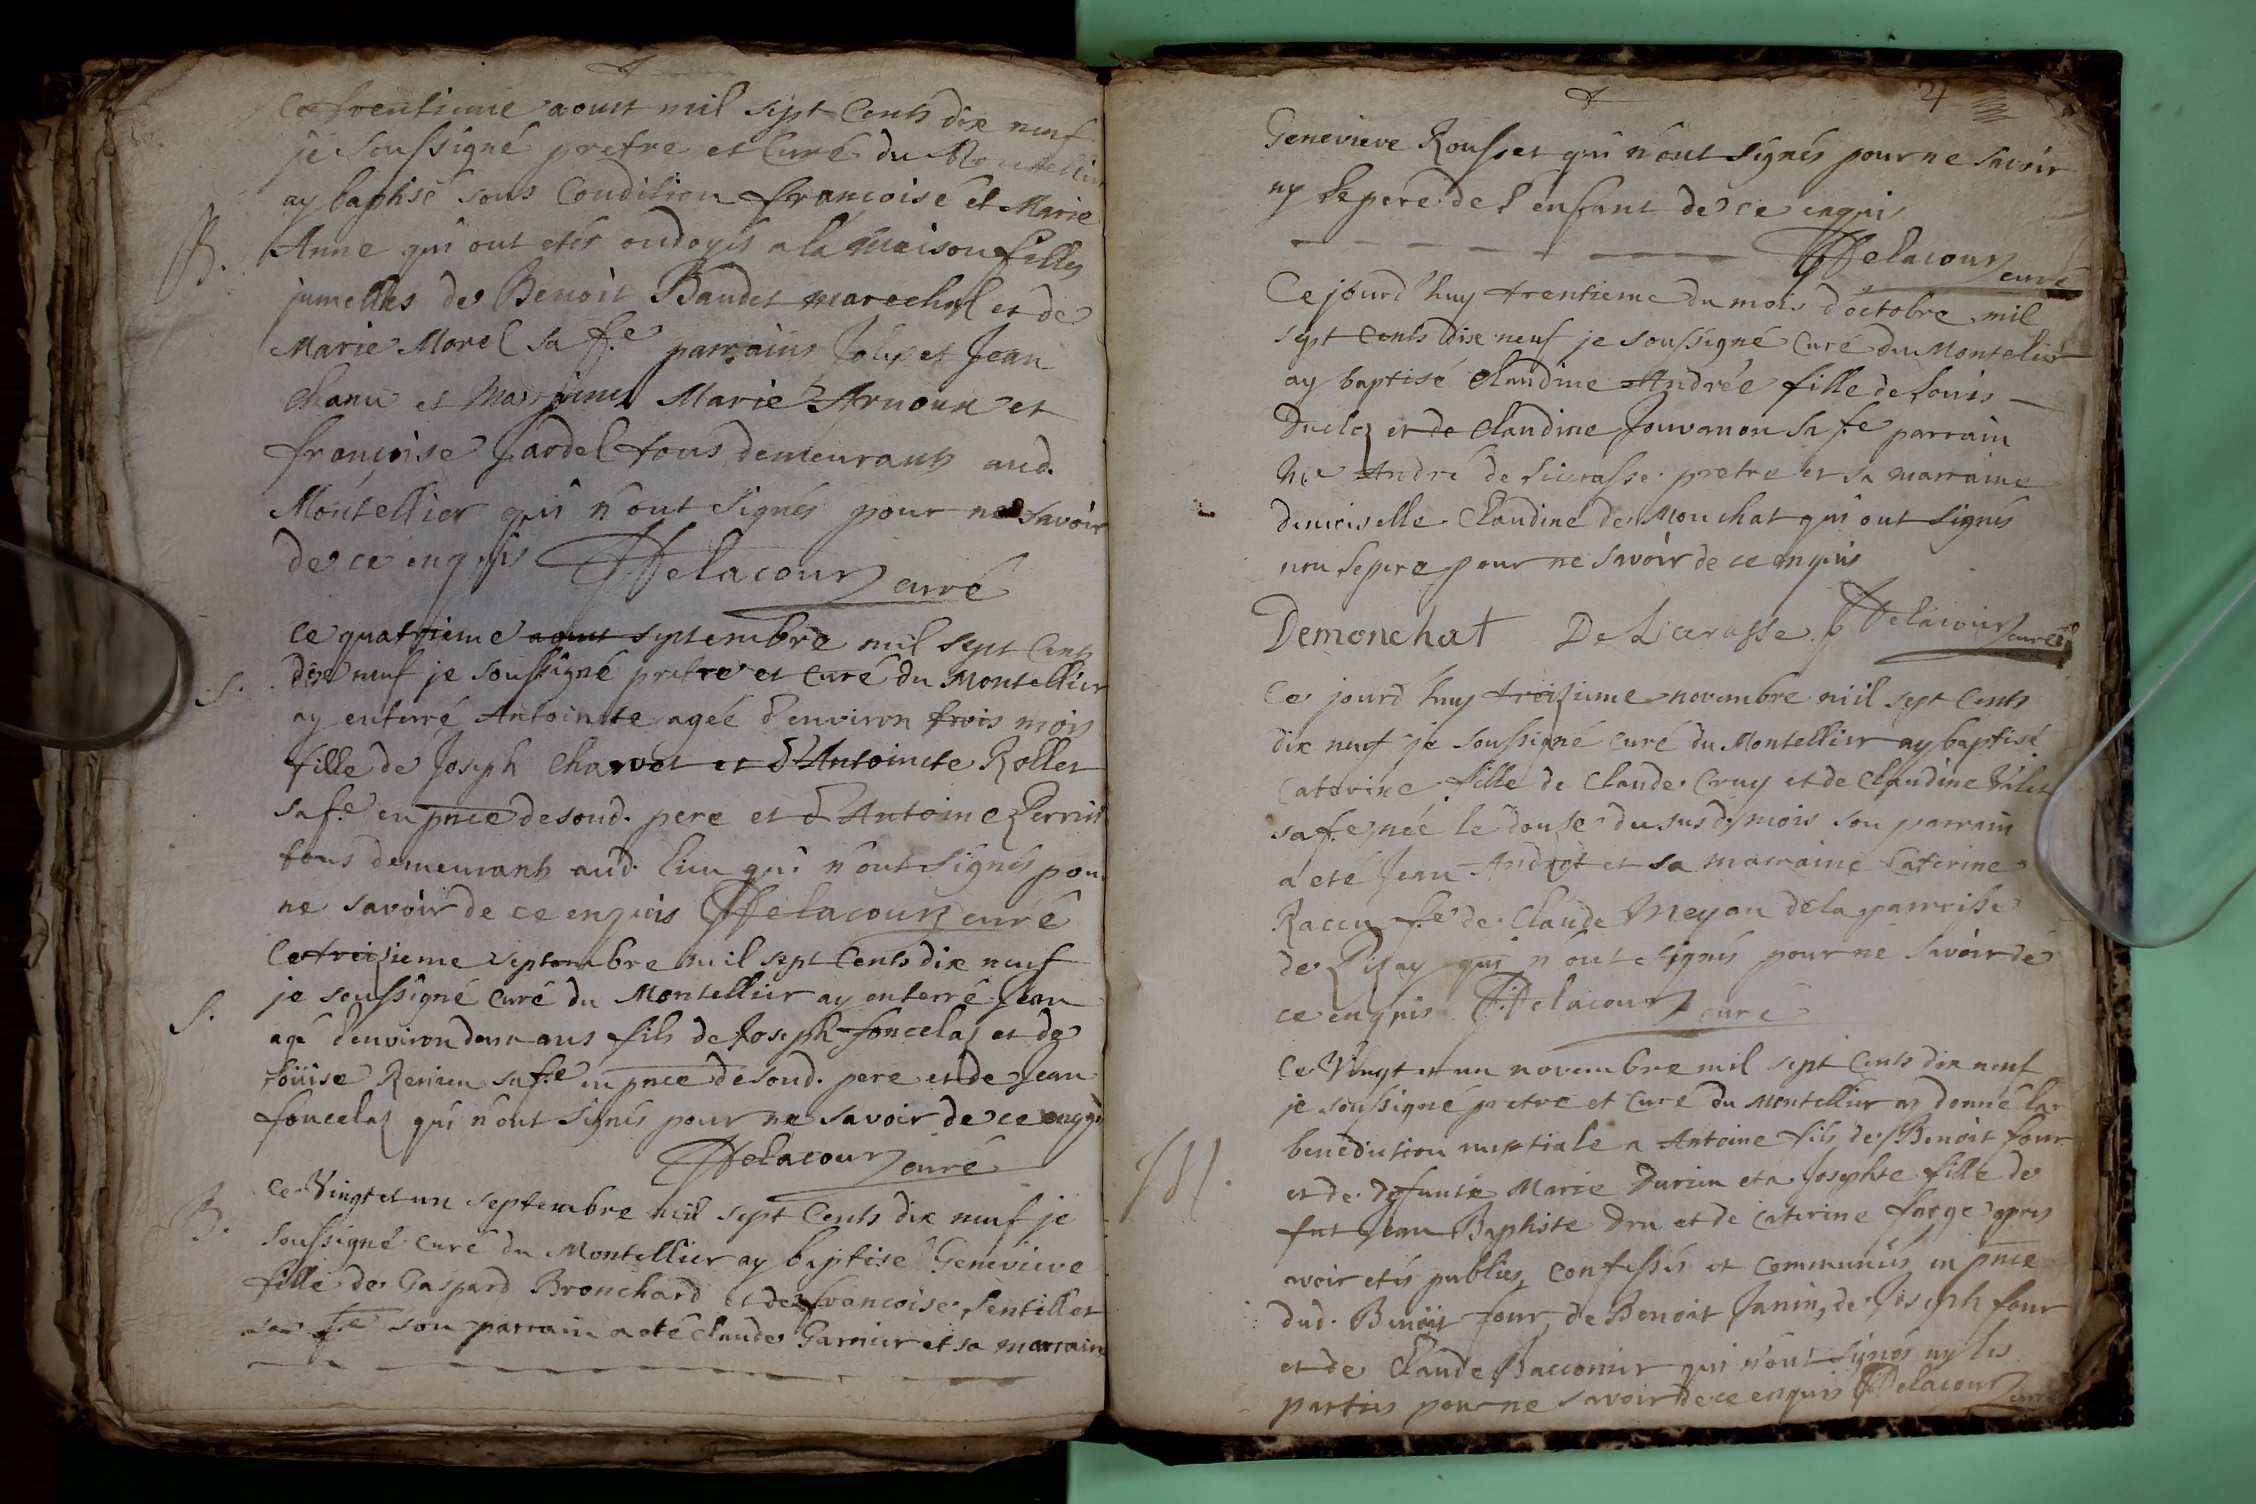 Ce trentieme aoust mil sept Cents dix neuf
je soussigné pretre et Curé du Montellier
ay baptisé sous Condition françoise et Marie
B. Anne qui ont etés ondoyés a la maison filles
jumelles de Benoit Baudet marechal et de
Marie Morel sa f.e parrains et Jean
Chanu et Marraines Marie Arnoux et
françoise Jardel tous demeurants aud.
Montellier qui n'ont signés pour ne savoir
de ce enquis Delacour curé
ce quatrieme aoust septembre mil sept Cents
S. dix neuf je soussigné pretre et curé du Montellier
ay enterré Antoinete agée d'environ trois mois
fille de Joseph Charvet et d'Antoinete Rollet
sa f.e en pnce desond. pere et d'Antoine Perrin
tous demeurants aud. lieu qui n'ont signés pour
ne savoir de ce enquis Delacour curé
Ce treizieme septembre mil sept Cents dix neuf
S. je soussigné curé du Montellier ay enterré Jean
agé d'environ deux ans fils de Joseph foncelas et de
Loüise sa f.e en pnce desond. pere et de Jean
foncelas qui n'ont signés pour ne savoir de ce enquis
Delacour curé
B. Ce Vingt et un septembre mil sept Cents dix neuf je
soussigné curé du Montellier ay baptisé Genevieve
fille de Gaspard Bronchard et de françoise Lentillet
sa f.e son parrain a eté Claude Garnier et sa marraine
4
Genevieve Rousset qui n'ont signés pour ne savoir
ny le pere de l'enfant de ce enquis
Delacour curé
Ce jourd'huy trentieme du mois d'octobre mil
sept cents dix neuf je soussigné Curé du Montelier
ay baptisé Claudine Andrée fille de Louis
Duclos et de Claudine Jouvanon sa f.e parrain
Mre André de Licerasse pretre et sa marraine
demoiselle Claudine de Monchat qui ont signés
non le pere pour ne savoir de ce enquis
Demonchat De Licerasse Delacour curé
Ce jourd'huy treizieme novembre mil sept Cents
dix neuf je soussigné curé du Montellier ay baptisé
Caterine fille de Claude Cruy et de Claudine
sa f.e née le douse du susd. mois son parrain
a eté Jean Andret et sa marraine Caterine
Raccu f.e de Claude Meyan de la parroisse
de Pizay qui n'ont signés pour ne savoir de
ce enquis Delacour curé
Ce Vingt et un novembre mil sept Cents dix neuf
je soussigné pretre et Curé du Montellier ay donné la
M. benediction nuptiale a Antoine fils de Benoit four
et de defunte Marie Durieu et a Josephte fille de
fut Jean Baptiste Dru et de Caterine farge apres
avoir etés publiés confessés et Communiés en pnce
dud. Benoit four, de Benoit Janin, de Joseph four
et de Claude Bacconier qui n'ont signés ny les
parties pour ne savoir de ce enquis Delacour curé